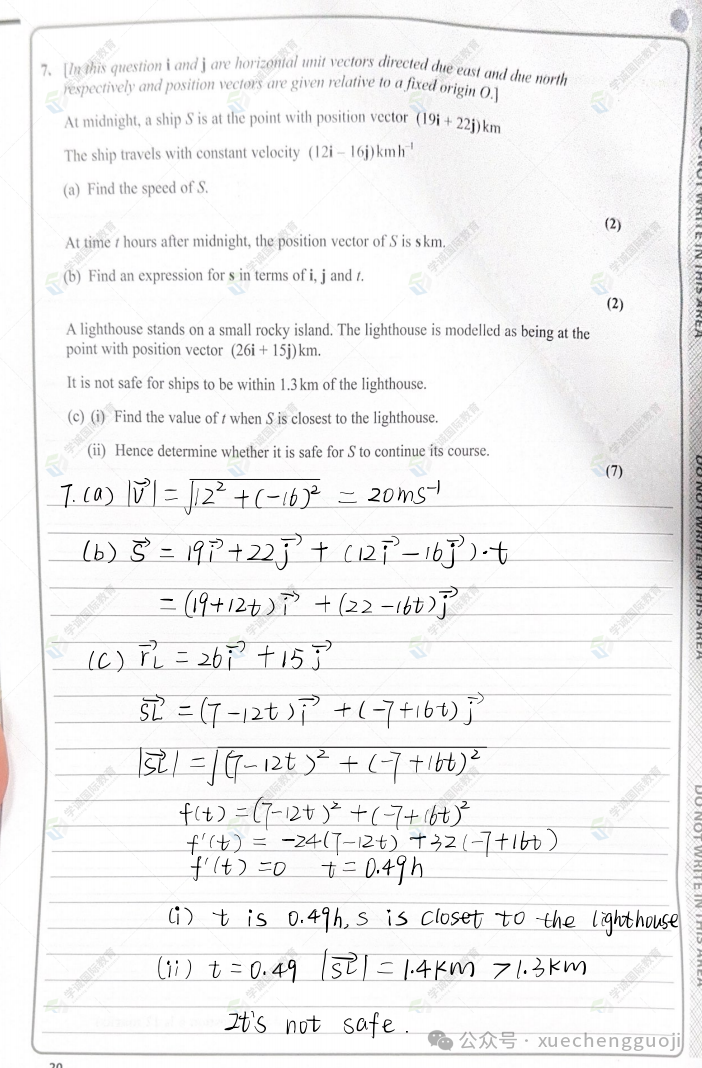 7. [In this question i and j are horizontal unit vectors directed due east and due north
respectively and position vectors are given relative to a fixed origin O.]
At midnight, a ship S is at the point with position vector (19i + 22j) km
The ship travels with constant velocity (12i – 16j) km h⁻¹
(a) Find the speed of S.
(2)
At time t hours after midnight, the position vector of S is s km.
(b) Find an expression for s in terms of i, j and t.
(2)
A lighthouse stands on a small rocky island. The lighthouse is modelled as being at the
point with position vector (26i + 15j) km.
It is not safe for ships to be within 1.3 km of the lighthouse.
(c) (i) Find the value of t when S is closest to the lighthouse.
(ii) Hence determine whether it is safe for S to continue its course.
(7)
7. (a) |v⃗| = √(12² + (-16)²) = 20 ms⁻¹
(b) s⃗ = 19i⃗ + 22j⃗ + (12i⃗ - 16j⃗)·t
= (19+12t)i⃗ + (22-16t)j⃗
(c) r⃗L = 26i⃗ + 15j⃗
SL⃗ = (7-12t)i⃗ + (-7+16t)j⃗
|SL⃗| = √((7-12t)² + (-7+16t)²)
f(t) = (7-12t)² + (-7+16t)²
f'(t) = -24(7-12t) + 32(-7+16t)
f'(t) = 0 t = 0.49h
(i) t is 0.49h, s is closet to the lighthouse
(ii) t = 0.49 |SL⃗| = 1.4km > 1.3km
It's not safe.
公众号 · xuechengguoji
20
DO NOT WRITE IN THIS AREA
DO NOT WRITE IN THIS AREA
DO NOT WRITE IN THIS AREA
学诚国际教育